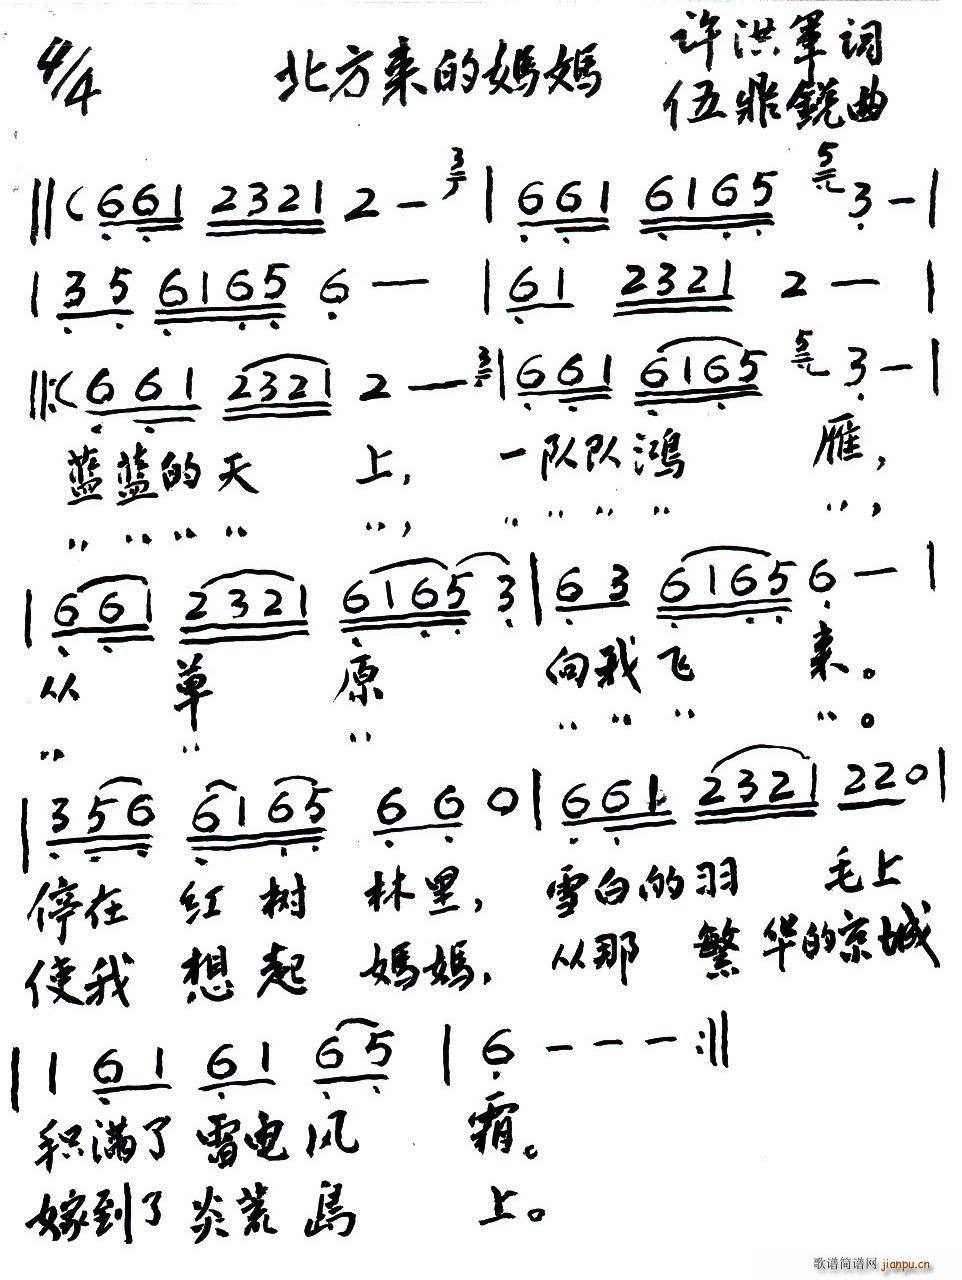 4/4
北方来的媽媽
许洪军词
伍鼎鋭曲
‖( 661 2321 2 — 3 | 661 6165 5 3 — |
| 35 6165 6 — | 61 2321 2 — |
‖:( 661 2321 2 — 3 | 661 6165 5 3 — |
蓝蓝的天 上, 一队队鸿 雁,
〃 〃 〃 〃 〃, 〃 〃 〃 〃 〃,
| 661 2321 6165 3 | 63 6165 6 — |
从 草 原 向我飞 来。
〃 〃 〃 〃 〃 〃 〃。
| 356 6165 6 6 0 | 661 2321 220 |
停在 红树 林里, 雪白的羽 毛上
使我 想起 媽媽, 从那 繁华的京城
| 1 61 61 65 | 6 — — — :‖
积满了 雷电风 霜。
嫁到了 炎荒島 上。
歌谱简谱网 jianpu.cn